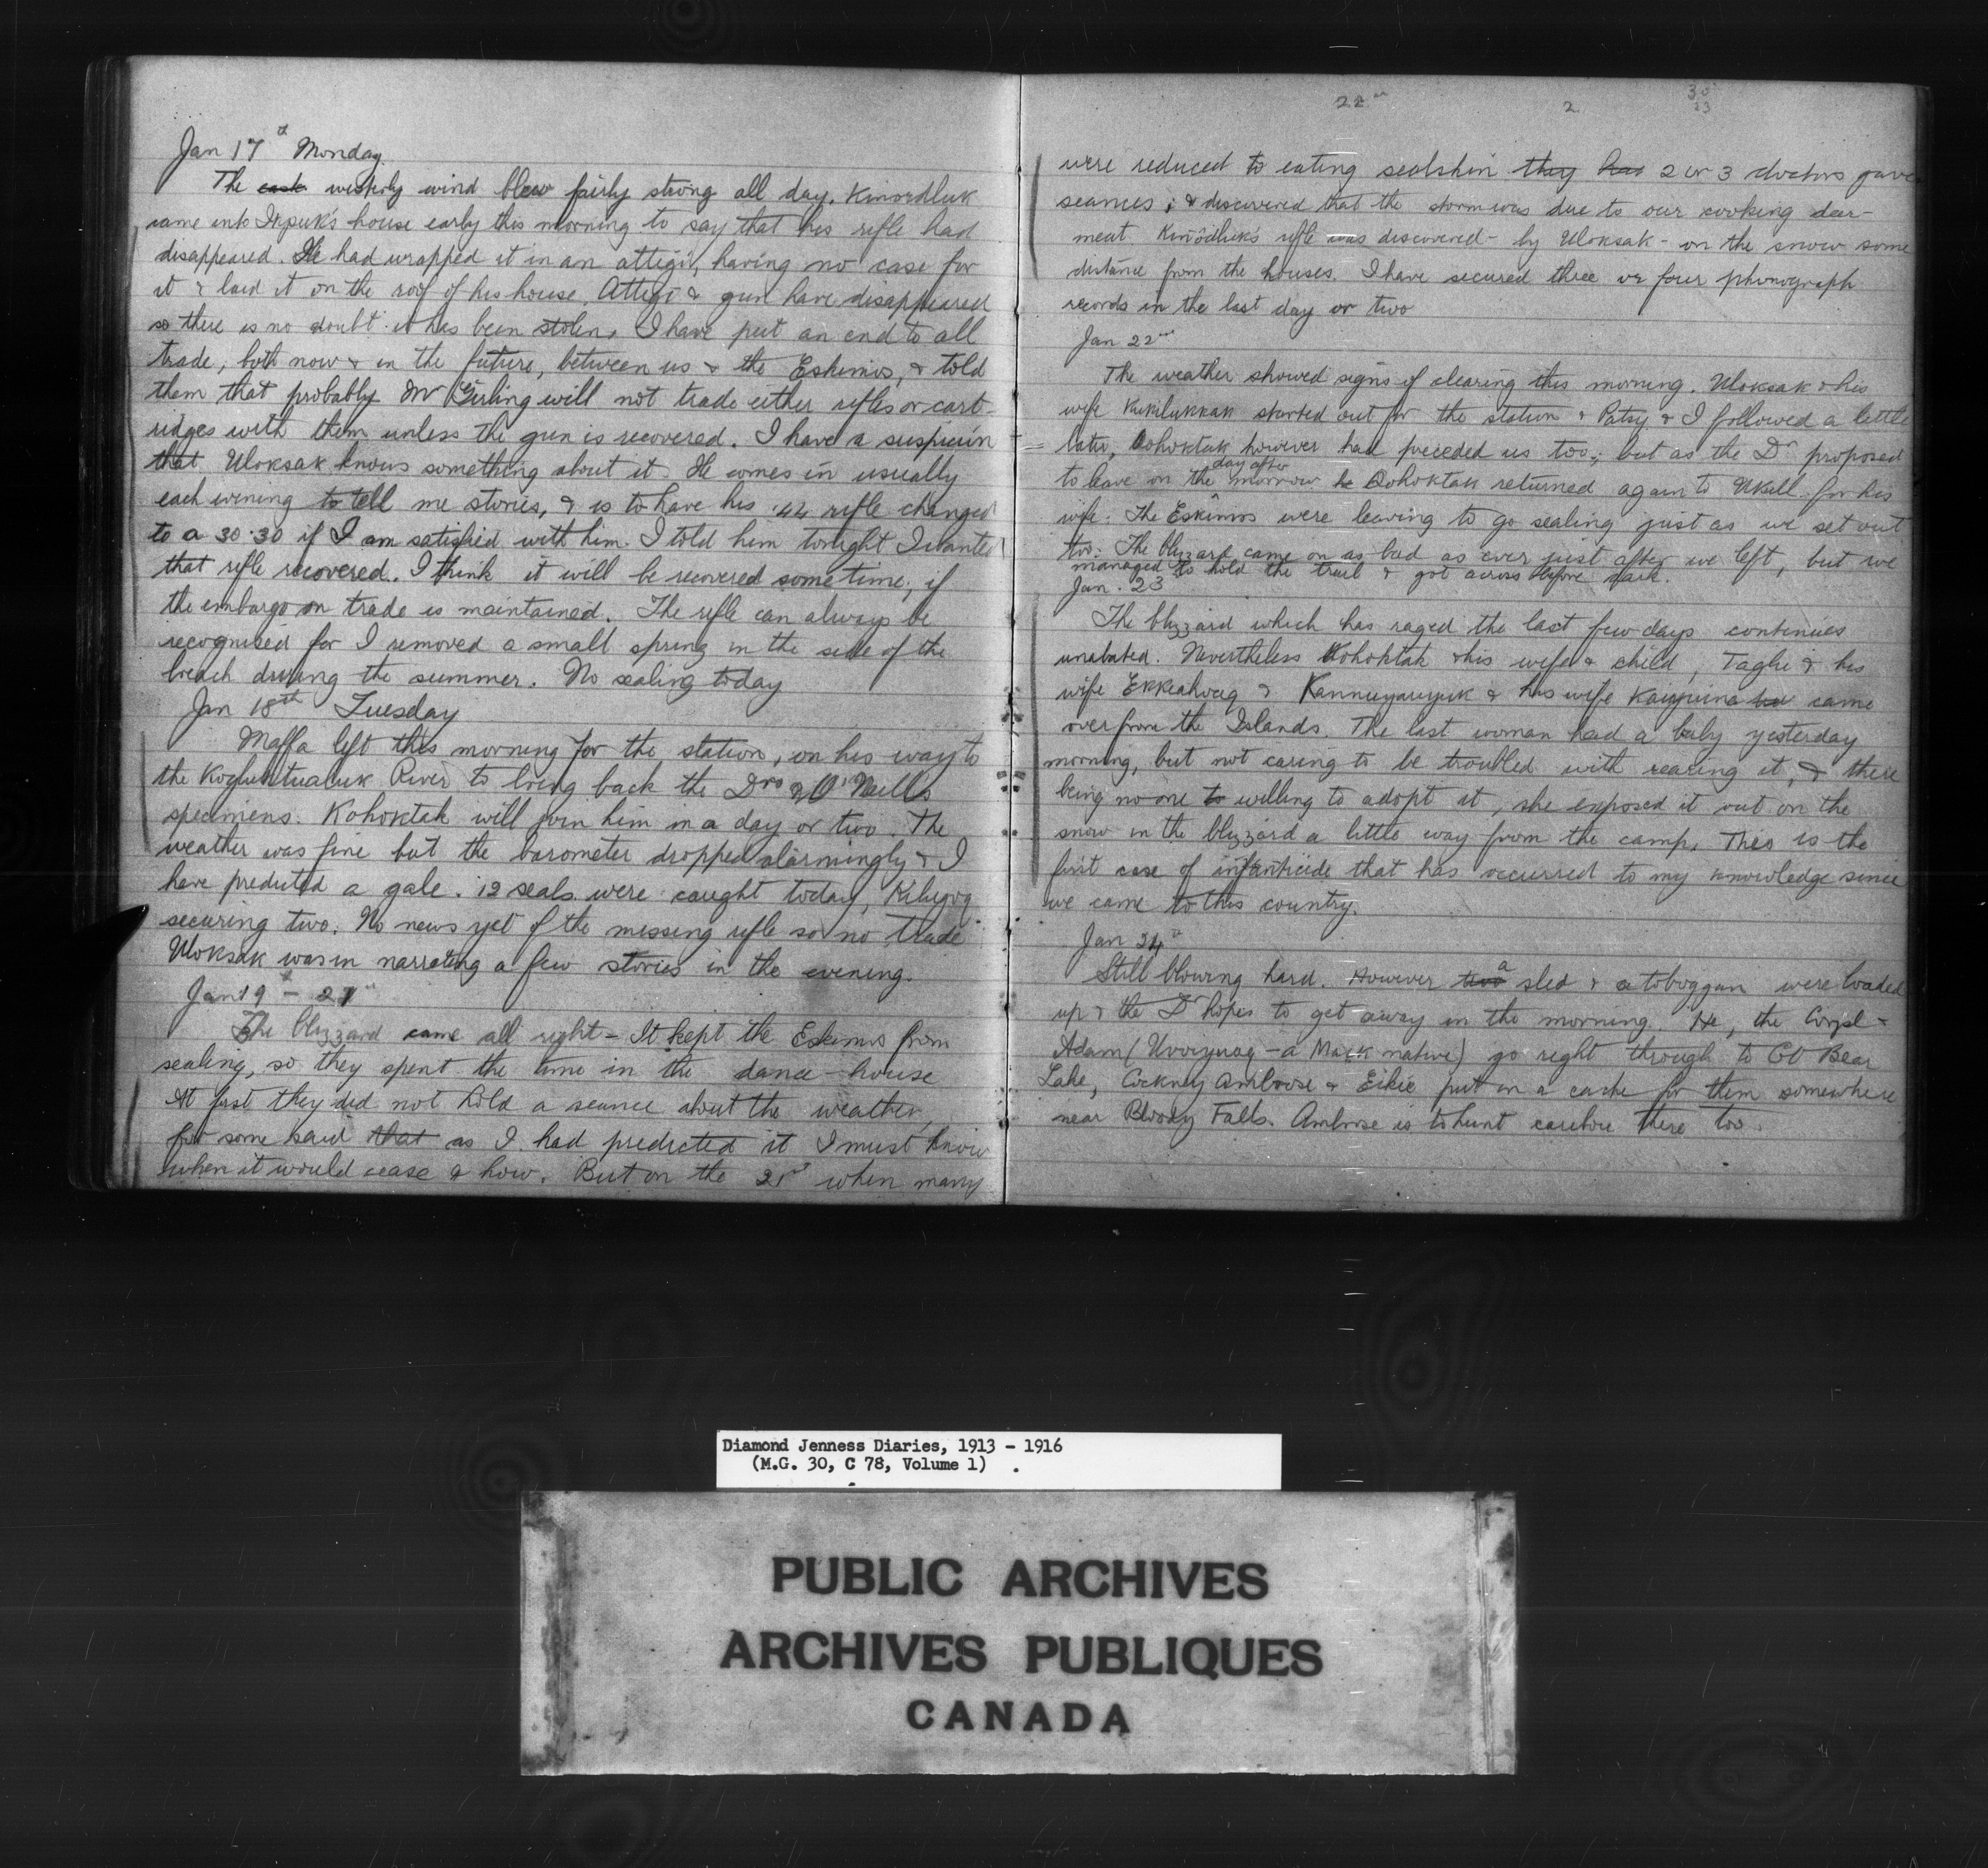 Jan 17th Monday.
The westerly wind blew fairly strong all day. Kinordluk
came into Ikpuk's house early this morning to say that his rifle had
disappeared. He had wrapped it in an attegi, having no case for
it & laid it on the roof of his house. Attegi & gun have disappeared
so there is no doubt it has been stolen. I have put an end to all
trade, both now & in the future, between us & the Eskimos, & told
them that probably Mr Girling will not trade either rifles or cart-
ridges with them unless the gun is recovered. I have a suspicion
that Uloksak knows something about it. He comes in usually
each evening to tell me stories, & is to have his .44 rifle changed
to a 30.30 if I am satisfied with him. I told him tonight I wanted
that rifle recovered. I think it will be recovered some time, if
the embargo on trade is maintained. The rifle can always be
recognised for I removed a small spring in the side of the
breach during the summer. No sealing today
Jan 18th Tuesday
Maffa left this morning for the station, on his way to
the Kogluktualuk River to bring back the Drs & O'Neill's
specimens. Kohoktak will join him in a day or two. The
weather was fine but the barometer dropped alarmingly & I
have predicted a gale. 12 seals were caught today, Kilugoq
securing two. No news yet of the missing rifle so no trade
Uloksak was in narrating a few stories in the evening.
Jan 19th - 21st
The blizzard came all right - It kept the Eskimos from
sealing, so they spent the time in the dance-house
At first they did not hold a seance about the weather,
for some said that as I had predicted it I must know
when it would cease & how. But on the 21st when many
22nd 2 30
23
were reduced to eating sealskin they had 2 or 3 doctors gave
seances; & discovered that the storm was due to our cooking deer-
meat. Kinordluk's rifle was discovered - by Uloksak - on the snow some
distance from the houses. I have secured three or four phonograph
records in the last day or two
Jan 22nd
The weather showed signs of clearing this morning. Uloksak & his
wife Kukilukkak started out for the station & Patsy & I followed a little
later, Kohoktak however had preceded us too; but as the Dr proposed
to leave on the day after morrow he Kohoktak returned again to Ukull. for his
wife. The Eskimos were leaving to go sealing just as we set out
too. The blizzard came on as bad as ever just after we left, but we
managed to hold the trail & got across before dark.
Jan. 23
The blizzard which has raged the last few days continues
unabated. Nevertheless Kohoktak & his wife & child, Taglu & his
wife Ekkeahoaq & Kannuyauyuk & his wife Kaiyuina had came
over from the Islands. The last woman had a baby yesterday
morning, but not caring to be troubled with rearing it, & there
being no one to willing to adopt it, she exposed it out on the
snow in the blizzard a little way from the camp. This is the
first case of infanticide that has occurred to my knowledge since
we came to this country.
Jan 24th
Still blowing hard. However two a sled & a toboggan were loaded
up & the Dr hopes to get away in the morning. He, the Corpl &
Adam (Uvoiyuaq - a Mack native) go right through to Gt Bear
Lake, Cockney Ambrose & Eikie put in a cache for them somewhere
near Bloody Falls. Ambrose is to hunt caribou there too.
Diamond Jenness Diaries, 1913 - 1916
(M.G. 30, C 78, Volume 1)
PUBLIC ARCHIVES
ARCHIVES PUBLIQUES
CANADA